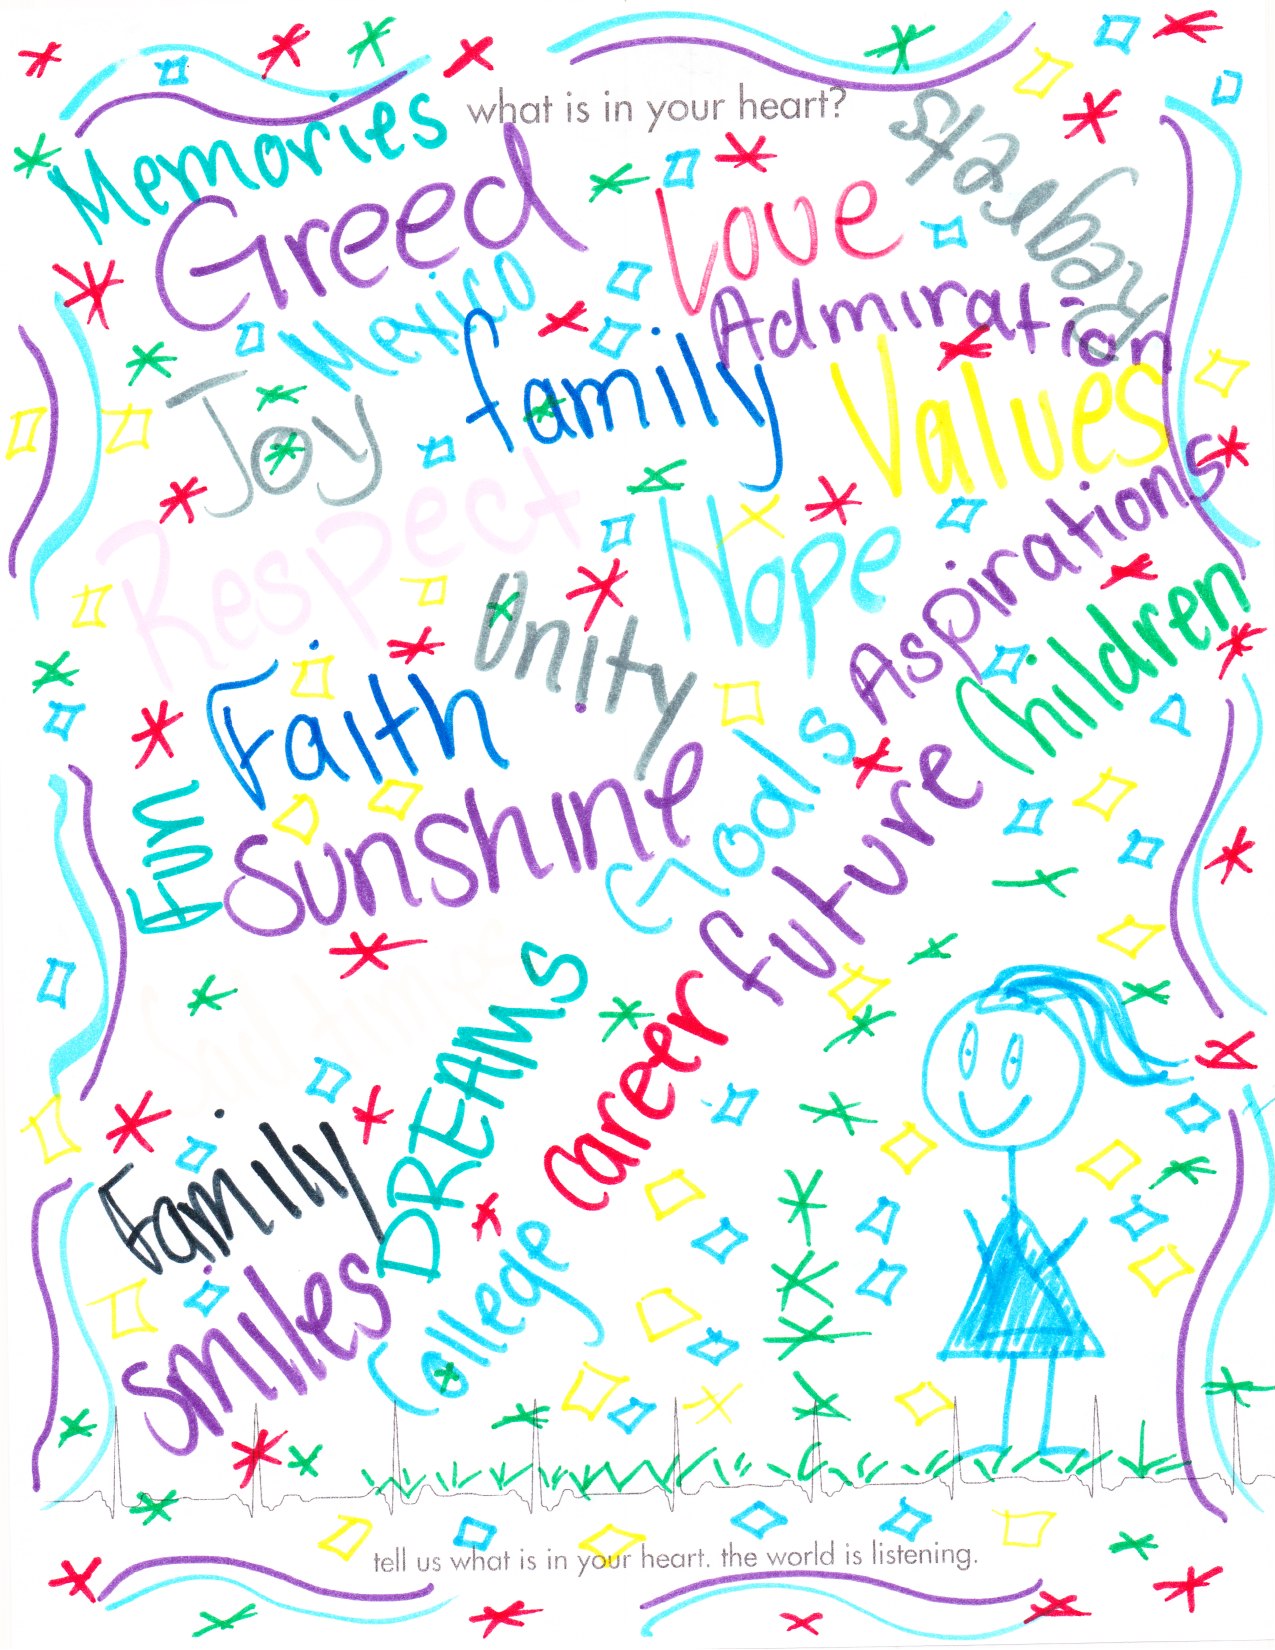 what is in your heart?
Memories
Greed
Love
Regrets
Mexico
Admiration
family
Joy
Values
Respect
Hope
Aspirations
Unity
Children
Faith
Fun
Sunshine
Goals
future
DREAMS
Career
Family
smiles
College
tell us what is in your heart. the world is listening.